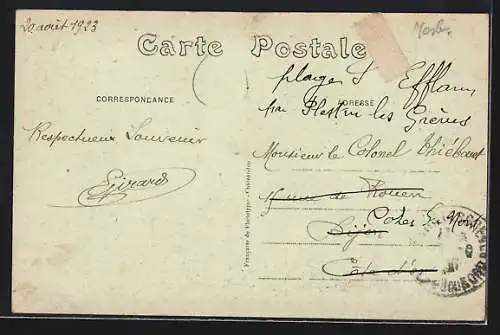 20 août 1923
Carte Postale
plage St Efflam
CORRESPONDANCE
par Plestin les Grèves
ADRESSE
Respectueux Souvenir
Monsieur le Colonel Thiébaut
Girard
rue de Rouen
Dijon
Côtes du Nord
Côte d'or